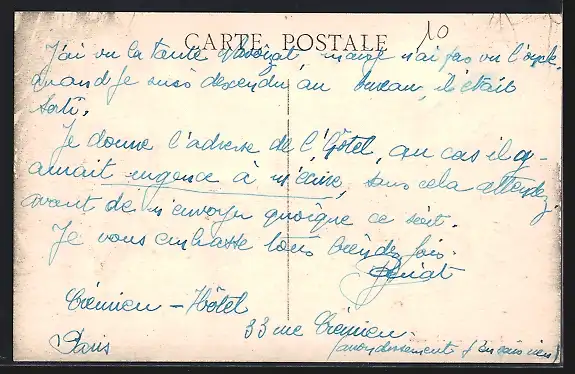 10
CARTE POSTALE
J'ai vu la tante mais n'ai pas vu l'oncle,
quand je suis descendu au bureau, il était
sorti.
Je donne l'adresse de l'Hôtel, au cas il y-
aurait urgence à m'écrire, sans cela attendez
avant de m'envoyer quoique ce soit.
Je vous embrasse tous bien des fois.
Crémieu - Hôtel
33 rue Crémieu
Paris
(arrondissement